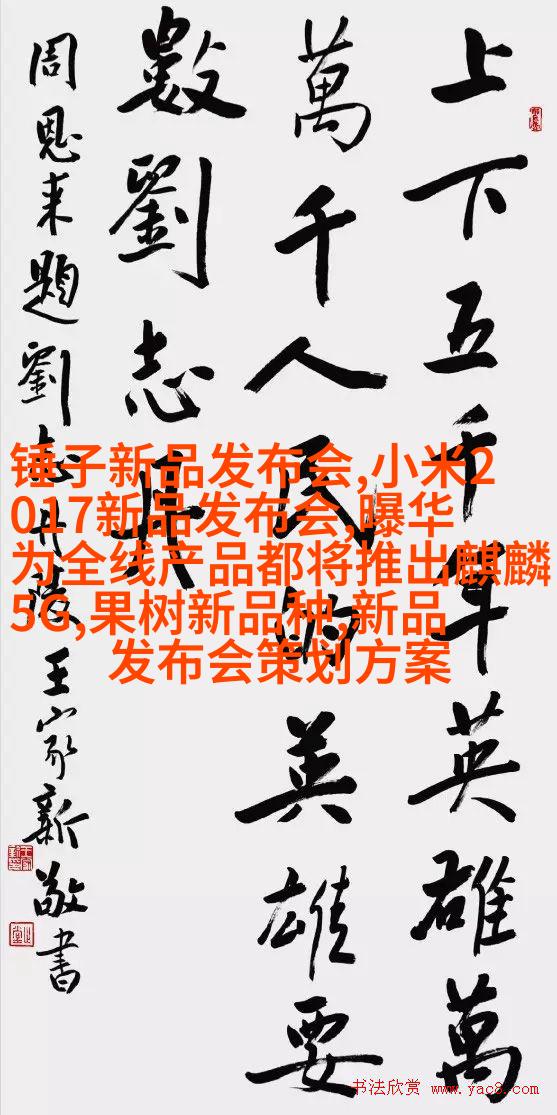 上下五千年英雄萬
萬千人民的英雄要
數劉志丹
周恩来題劉志丹陵王家新敬書
锤子新品发布会,小米2
017新品发布会,曝华
为全线产品都将推出麒麟
5G,果树新品种,新品
发布会策划方案
书法欣赏 www.yac8.com